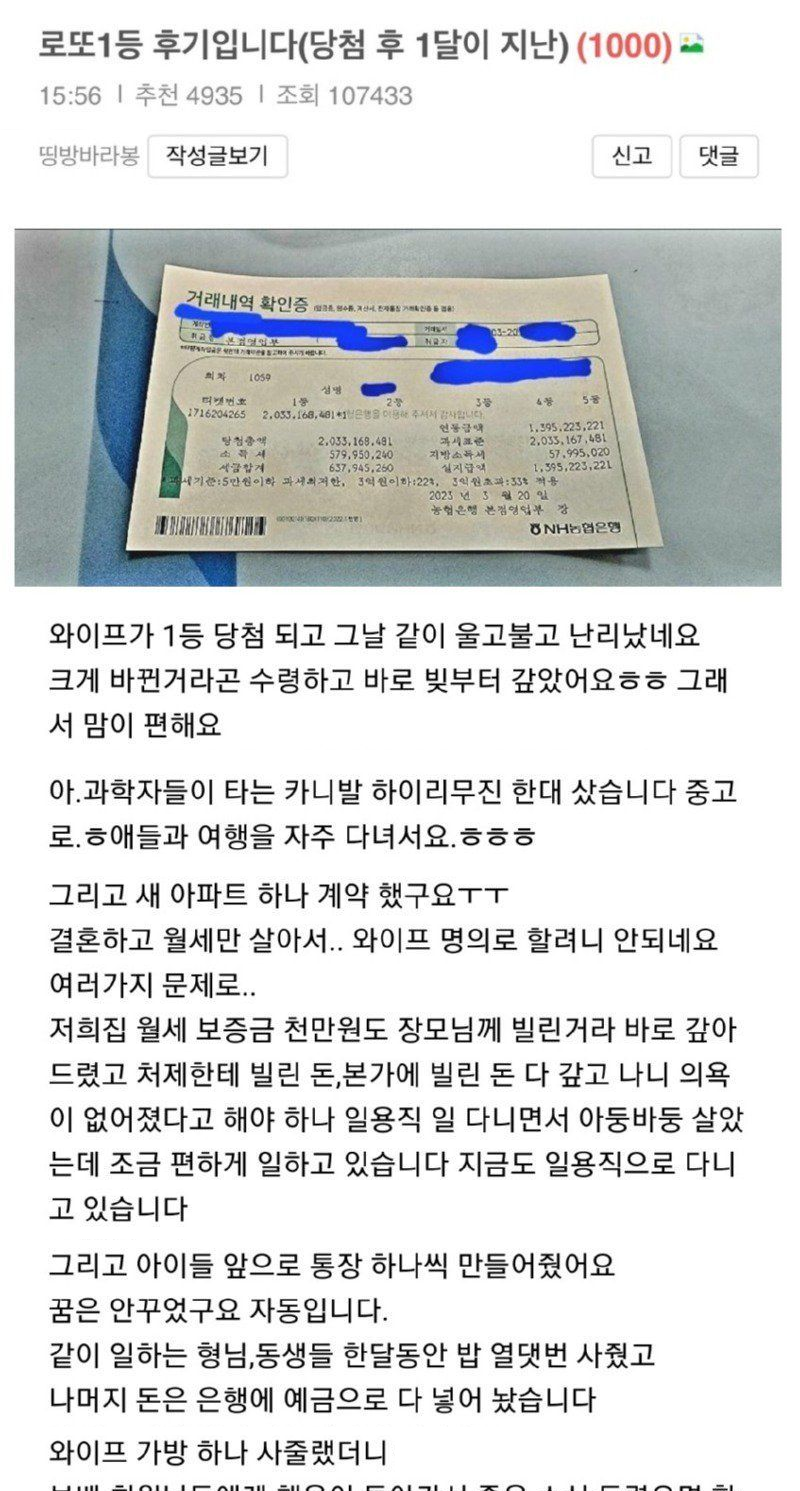 로또1등 후기입니다(당첨 후 1달이 지난) (1000)
15:56 | 추천 4935 | 조회 107433
띵방바라봉 작성글보기 신고 댓글
거래내역 확인증
거래일시
취급 본점영업부 취급자
회차 1059
성명
티켓번호 1등 2등 3등 4등 5등
1716204265 2,033,168,481*1 은행을 이용해 주셔서 감사합니다.
연동금액 1,395,223,221
당첨총액 2,033,168,481 과세표준 2,033,167,481
소득세 579,950,240 지방소득세 57,995,020
세금합계 637,945,260 실지급액 1,395,223,221
과세기준:5만원이하 과세최저한, 3억원이하:22%, 3억원초과:33% 적용
2023 년 3 월 20 일
농협은행 본점영업부 장
NH농협은행
와이프가 1등 당첨 되고 그날 같이 울고불고 난리났네요
크게 바뀐거라곤 수령하고 바로 빚부터 갚았어요ㅎㅎ 그래
서 맘이 편해요
아.과학자들이 타는 카니발 하이리무진 한대 샀습니다 중고
로.ㅎ애들과 여행을 자주 다녀서요.ㅎㅎㅎ
그리고 새 아파트 하나 계약 했구요ㅜㅜ
결혼하고 월세만 살아서.. 와이프 명의로 할려니 안되네요
여러가지 문제로..
저희집 월세 보증금 천만원도 장모님께 빌린거라 바로 갚아
드렸고 처제한테 빌린 돈,본가에 빌린 돈 다 갚고 나니 의욕
이 없어졌다고 해야 하나 일용직 일 다니면서 아둥바둥 살았
는데 조금 편하게 일하고 있습니다 지금도 일용직으로 다니
고 있습니다
그리고 아이들 앞으로 통장 하나씩 만들어줬어요
꿈은 안꾸었구요 자동입니다.
같이 일하는 형님,동생들 한달동안 밥 열댓번 사줬고
나머지 돈은 은행에 예금으로 다 넣어 놨습니다
와이프 가방 하나 사줄랬더니